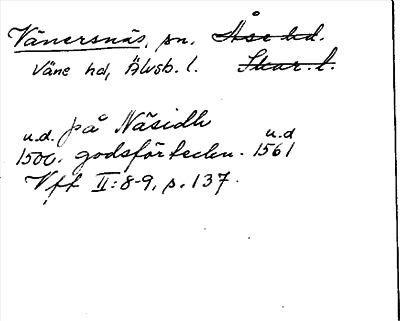 Vänersnäs, sn. Åse hd.
Väne hd, Älvsb. l. Skar. l.
u.d. på Näsidh u.d
1500. godsförteckn. 1561
Vff II:8-9, s. 137.